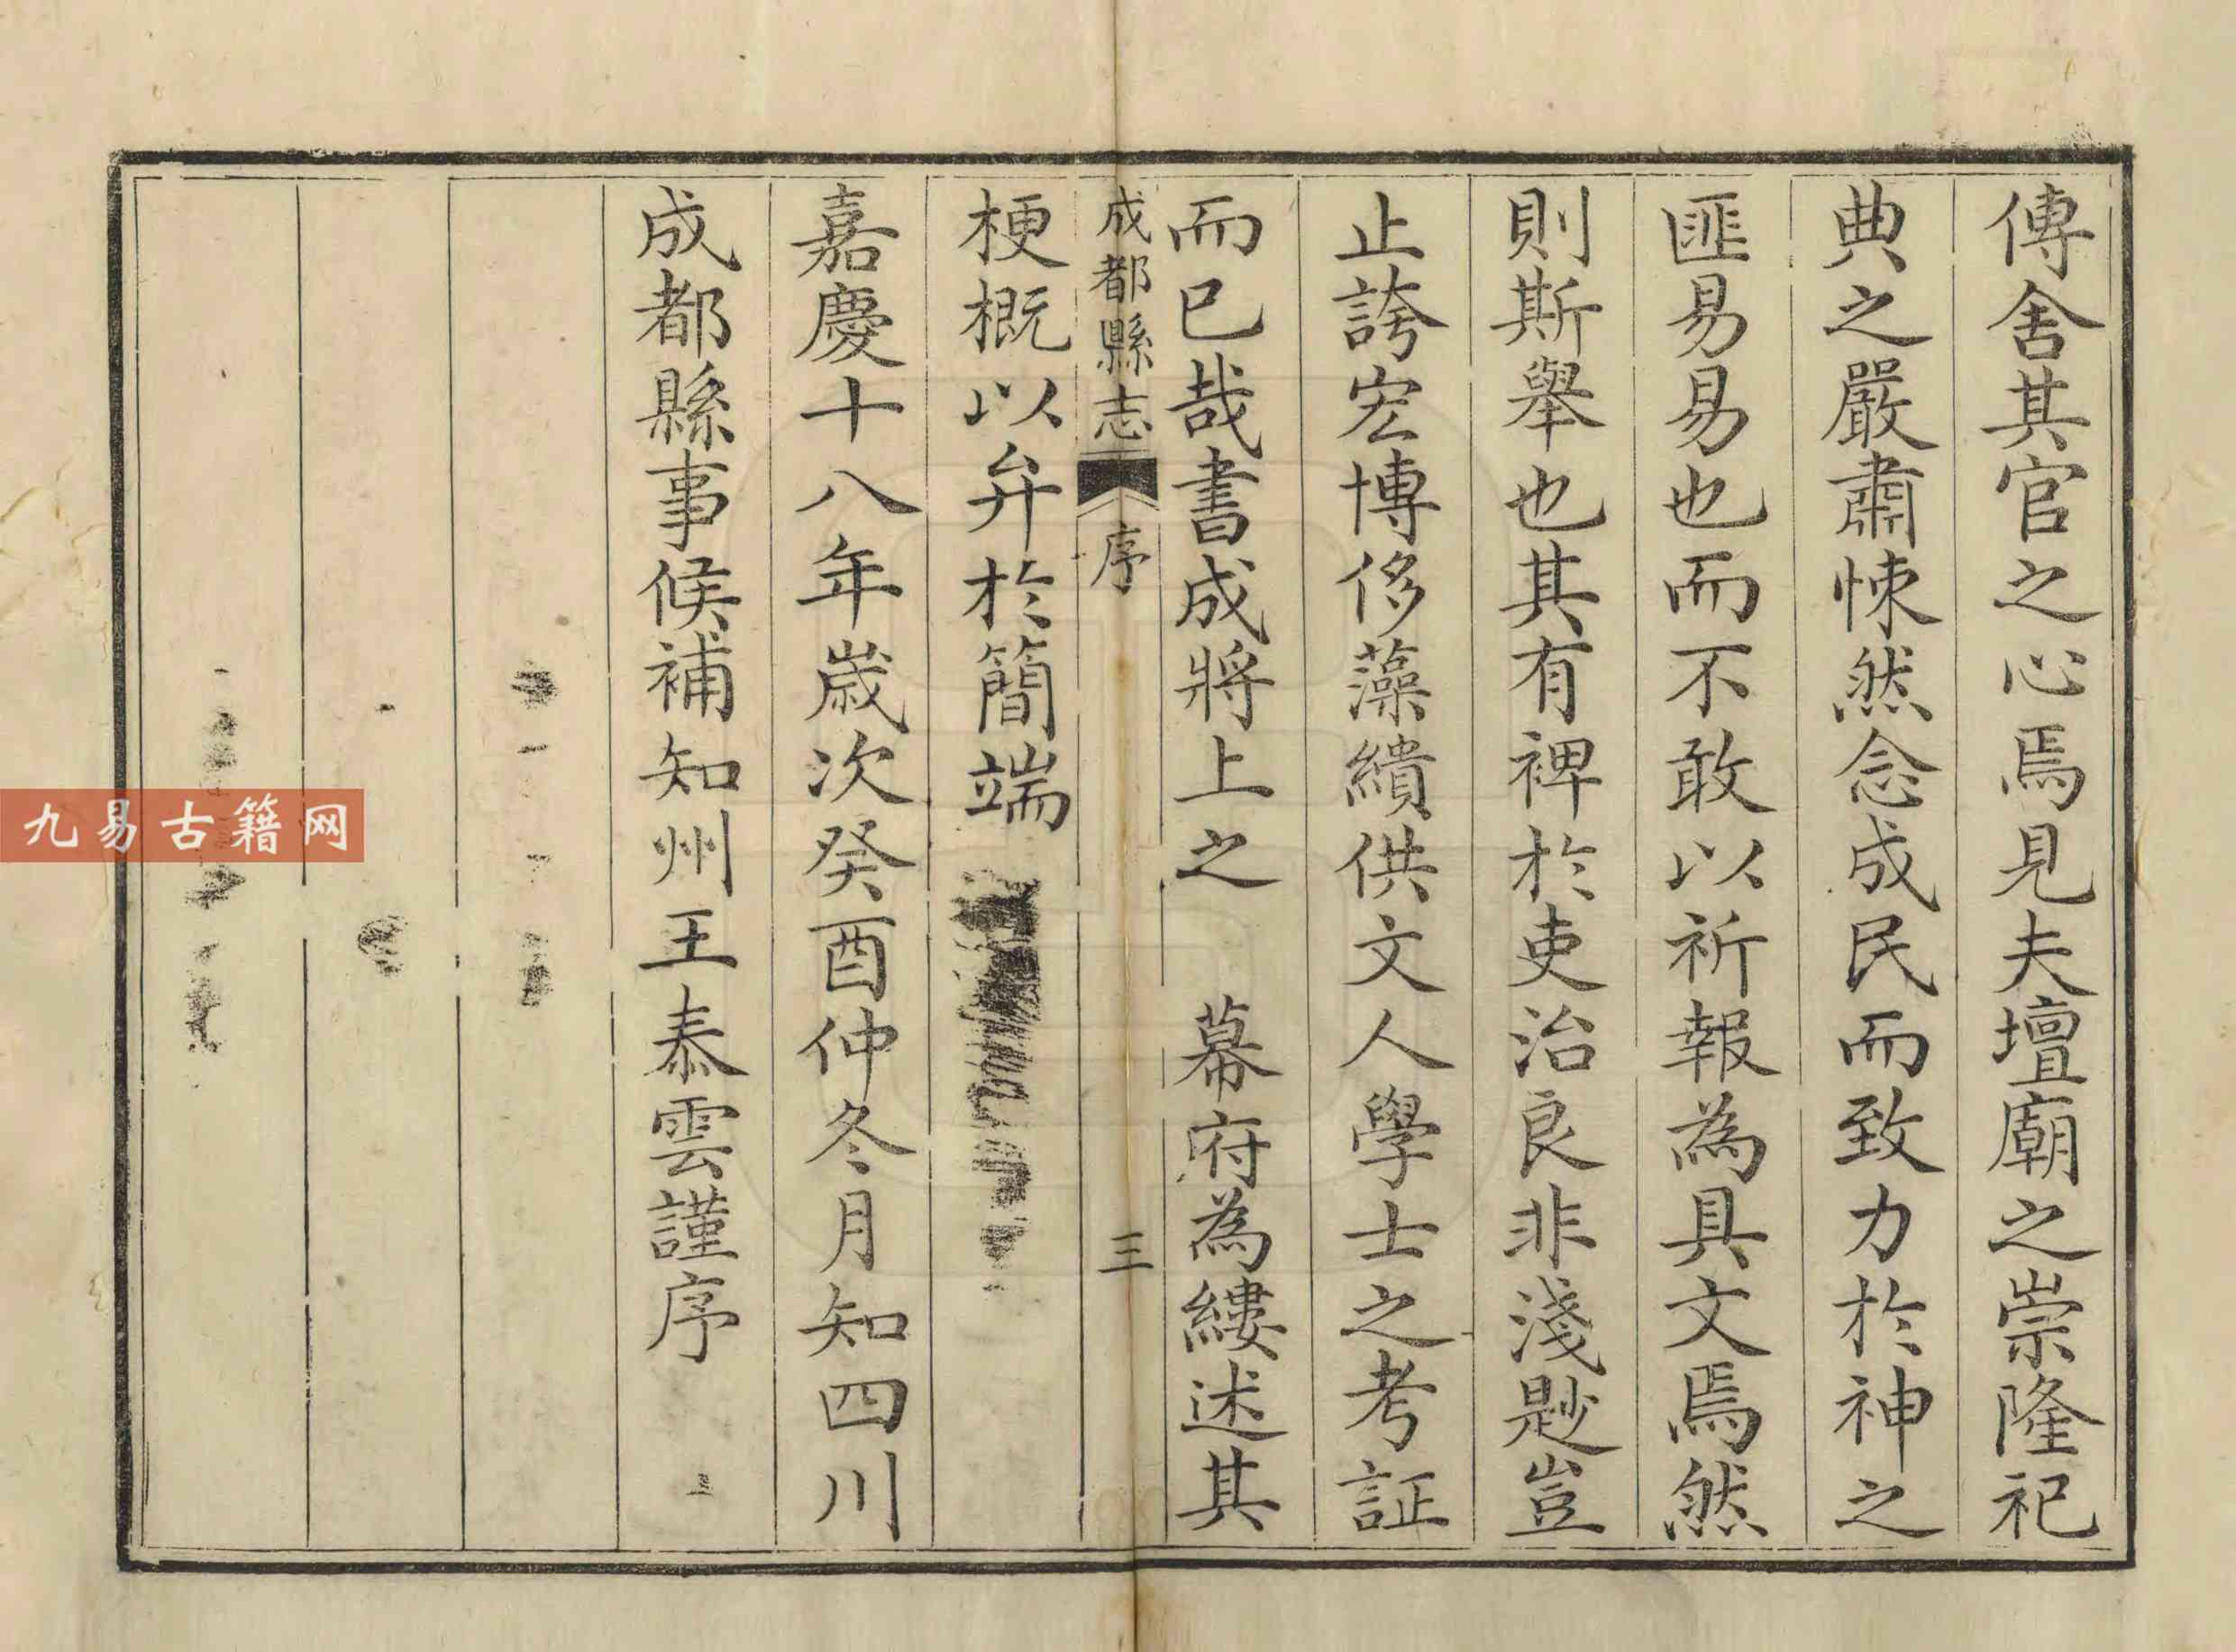 傳舍其官之心焉見夫壇廟之崇隆祀
典之嚴肅悚然念成民而致力於神之
匪易易也而不敢以祈報為具文焉然
則斯舉也其有裨於吏治良非淺尠豈
止誇宏博侈藻繢供文人學士之考証
而已哉書成將上之　幕府為縷述其
成都縣志　序　三
梗概以弁於簡端
嘉慶十八年歲次癸酉仲冬月知四川
成都縣事候補知州王泰雲謹序
九易古籍网